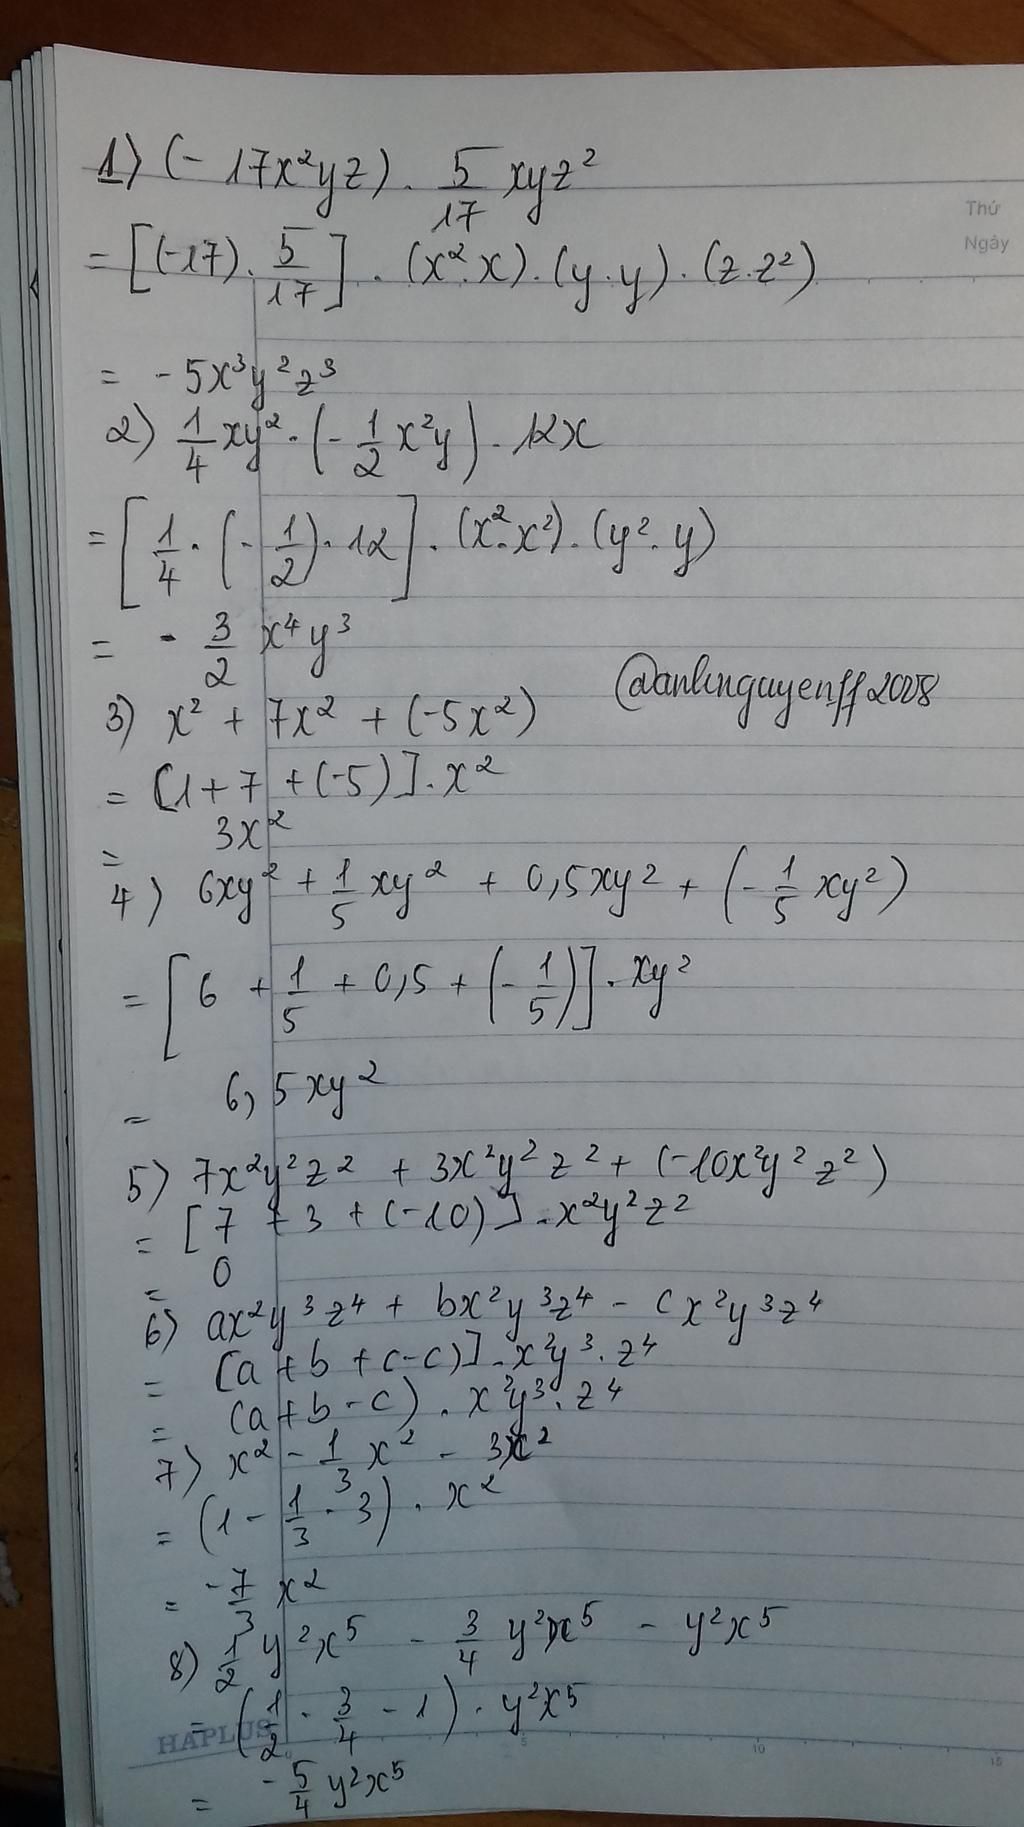 1) (- 17x²yz) . 5/17 xyz²
Thứ
Ngày
= [(-17) . 5/17] . (x².x) . (y.y) . (z.z²)
= - 5x³y²z³
2) 1/4 xy² . (- 1/2 x²y) . 12x
= [1/4 . (- 1/2) . 12] . (x².x²) . (y².y)
= - 3/2 x⁴y³
@anhnguyenff2008
3) x² + 7x² + (-5x²)
= [1 + 7 + (-5)] . x²
= 3x²
4) 6xy² + 1/5 xy² + 0,5xy² + (- 1/5 xy²)
= [6 + 1/5 + 0,5 + (- 1/5)] . xy²
= 6,5xy²
5) 7x²y²z² + 3x²y²z² + (-10x²y²z²)
= [7 + 3 + (-10)] . x²y²z²
= 0
6) ax²y³z⁴ + bx²y³z⁴ - cx²y³z⁴
= [a + b + (-c)] . x²y³.z⁴
= (a+b-c) . x²y³.z⁴
7) x² - 1/3 x² - 3x²
= (1 - 1/3 - 3) . x²
= -7/3 x²
8) 1/2 y²x⁵ - 3/4 y²x⁵ - y²x⁵
= (1/2 - 3/4 - 1) . y²x⁵
HAPLUS 0 5 10 15
= - 5/4 y²x⁵